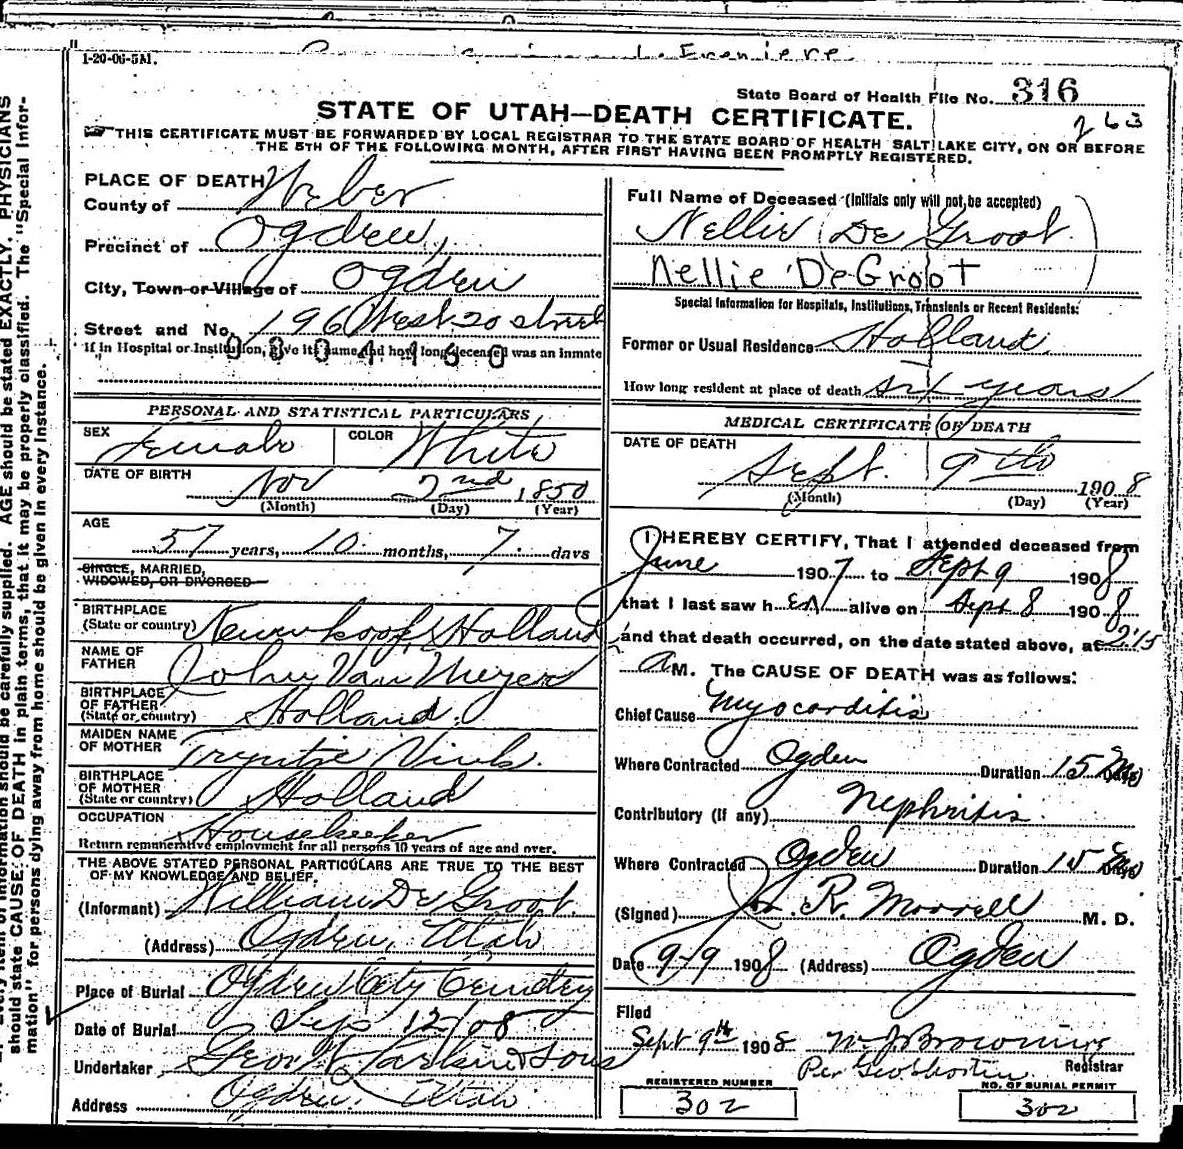 1-20-06-5M.
State Board of Health File No. 316
STATE OF UTAH—DEATH CERTIFICATE.
263
THIS CERTIFICATE MUST BE FORWARDED BY LOCAL REGISTRAR TO THE STATE BOARD OF HEALTH SALT LAKE CITY, ON OR BEFORE
THE 5TH OF THE FOLLOWING MONTH, AFTER FIRST HAVING BEEN PROMPTLY REGISTERED.
PLACE OF DEATH
County of Weber
Precinct of Ogden,
City, Town or Village of Ogden
Street and No. 196 West 20 street
If in Hospital or Institution, give its name and how long deceased was an inmate
PERSONAL AND STATISTICAL PARTICULARS
SEX Female COLOR White
DATE OF BIRTH Nov 2nd, 1850
(Month) (Day) (Year)
AGE
57 years, 10 months, 7 days
SINGLE, MARRIED,
WIDOWED, OR DIVORCED
BIRTHPLACE
(State or country) Holland
NAME OF
FATHER John Van Meyer
BIRTHPLACE
OF FATHER
(State or country) Holland
MAIDEN NAME
OF MOTHER Tryntje
BIRTHPLACE
OF MOTHER
(State or country) Holland
OCCUPATION Housekeeper
Return remunerative employment for all persons 10 years of age and over.
THE ABOVE STATED PERSONAL PARTICULARS ARE TRUE TO THE BEST
OF MY KNOWLEDGE AND BELIEF.
(Informant) William De Groot
(Address) Ogden, Utah
Place of Burial Ogden City Cemetery
Date of Burial Sep 12/08
Undertaker Geo W Larkin & Sons
Address Ogden, Utah
Full Name of Deceased (Initials only will not be accepted)
Nellie De Groot
Nellie DeGroot
Special Information for Hospitals, Institutions, Transients or Recent Residents:
Former or Usual Residence Holland.
How long resident at place of death six years
MEDICAL CERTIFICATE OF DEATH
DATE OF DEATH
Sept. 9th 1908
(Month) (Day) (Year)
I HEREBY CERTIFY, That I attended deceased from
June 1907 to Sept 9 1908
that I last saw her alive on Sept 8 1908
and that death occurred, on the date stated above, at 2:15
a M. The CAUSE OF DEATH was as follows:
Chief Cause Myocarditis
Where Contracted Ogden Duration 15 Mo
Contributory (if any) Nephritis
Where Contracted Ogden Duration 15 Mo
(Signed) Jos. R. Morrell M. D.
Date 9/9 1908 (Address) Ogden
Filed
Sept 9th 1908 W J Browning
Per Registrar
REGISTERED NUMBER
302
NO. OF BURIAL PERMIT
302
should state CAUSE OF DEATH in plain terms, that it may be properly classified. The "Special Infor-
mation" for persons dying away from home should be given in every instance.